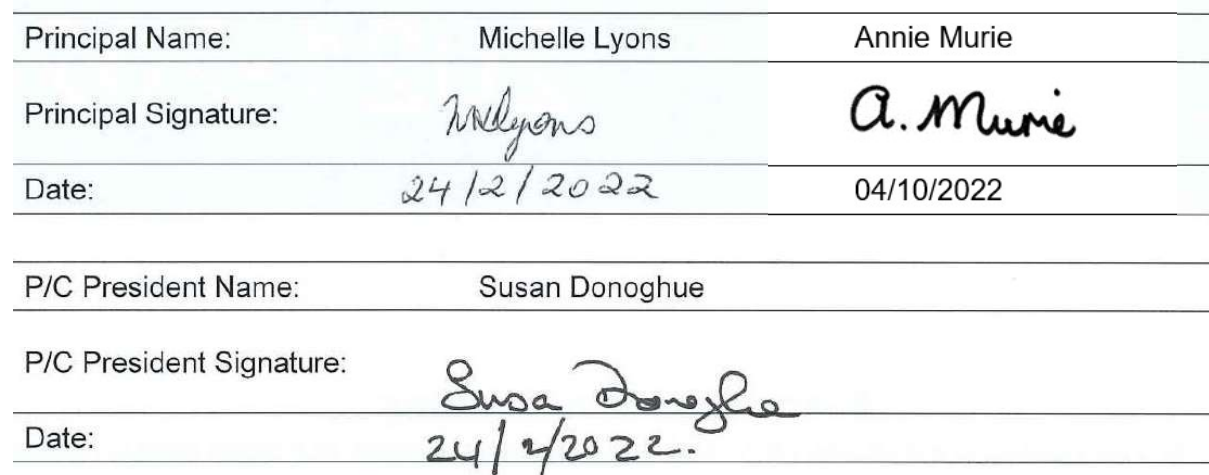 Principal Name: Michelle Lyons Annie Murie
Principal Signature: MLyons A. Murie
Date: 24/2/2022 04/10/2022
P/C President Name: Susan Donoghue
P/C President Signature: Susa Donoghue
Date: 24/2/2022.